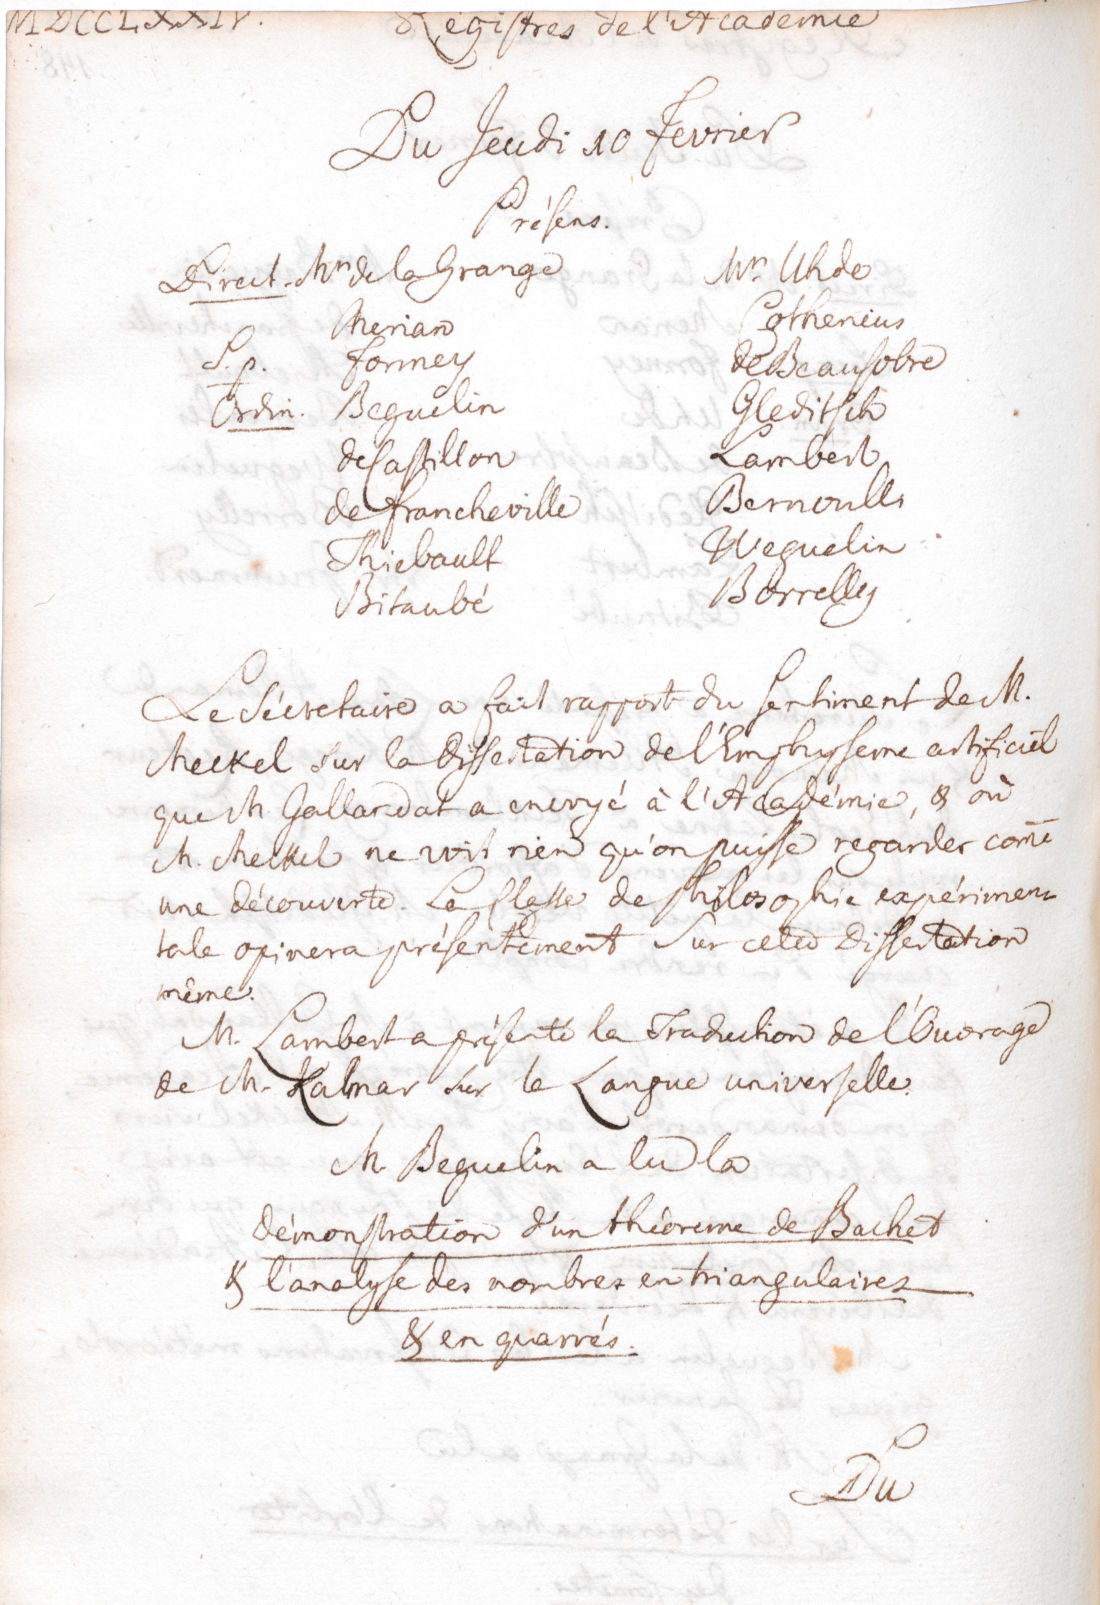 MDCCLXXIV. Registres de l'Academie
Du Jeudi 10 Fevrier
Présens.
Direct. Mrs. de la Grange
Merian
S. p. Formey
Ordin. Beguelin
de Castillon
de Francheville
Thiebault
Bitaubé
Mrs. Uhde
Cothenius
de Beausobre
Gleditsch
Lambert
Bernoulli
Weguelin
Borrelly
Le Sécretaire a fait rapport du sentiment de M.
Meckel sur la Dissertation de l'Emphyseme artificiel
que M. Gallardat a envoyé à l'Académie, & où
M. Meckel ne voit rien qu'on puisse regarder come
une découverte. La Classe de Philosophie expérimen-
tale opinera présentement sur cette Dissertation
même.
M. Lambert a présenté la Traduction de l'Ouvrage
de M. Kalmar sur la Langue universelle.
M. Beguelin a lu la
démonstration d'un théoreme de Bachet
& l'analyse des nombres en triangulaires
& en quarrés.
Du